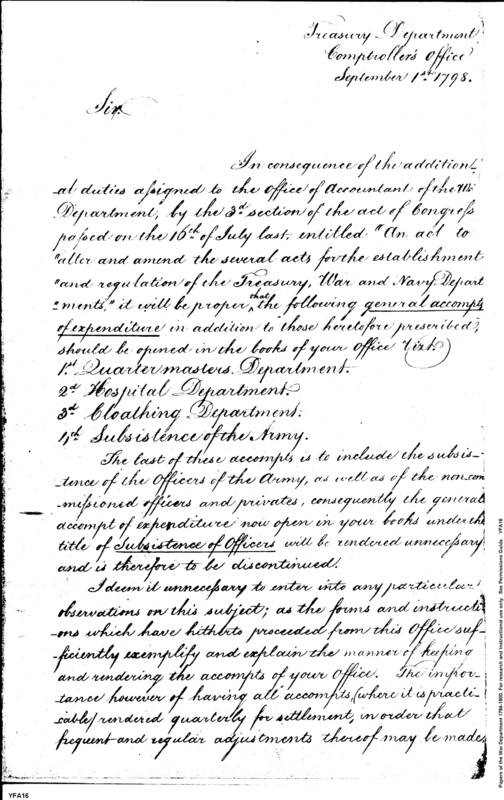 Treasury Department
Comptroller's Office
September 1st 1798.
Sir.
In consequence of the addition-
-al duties assigned to the office of Accountant of the
Department, by the 3d section of the act of Congress
passed on the 16th of July last, entitled "An act to
"alter and amend the several acts for the establishment
"and regulation of the Treasury, War and Navy Depart
"ments," it will be proper that the following general accompts
of expenditure in addition to those heretofore prescribed,
should be opened in the books of your Office Vizt.
1st Quartermasters Department.
2d Hospital Department.
3d Cloathing Department.
4th Subsistence of the Army.
The last of these accompts is to include the subsis-
-tence of the Officers of the Army, as well as of the noncom
-missioned officers and privates, consequently the general
accompt of expenditure now open in your books under the
title of Subsistence of Officers will be rendered unnecessary
and is therefore to be discontinued.
I deem it unnecessary to enter into any particular
observations on this subject; as the forms and instructi-
-ons which have hitherto proceeded from this Office suf-
-ficiently exemplify and explain the manner of keeping
and rendering the accompts of your Office. The impor-
-tance however of having all accompts, (where it is practi-
-cable) rendered quarterly for settlement, in order that
frequent and regular adjustments thereof may be made
Papers of the War Department 1784-1800. For research and instructional use only. See Permissions Guide. YFA16
YFA16